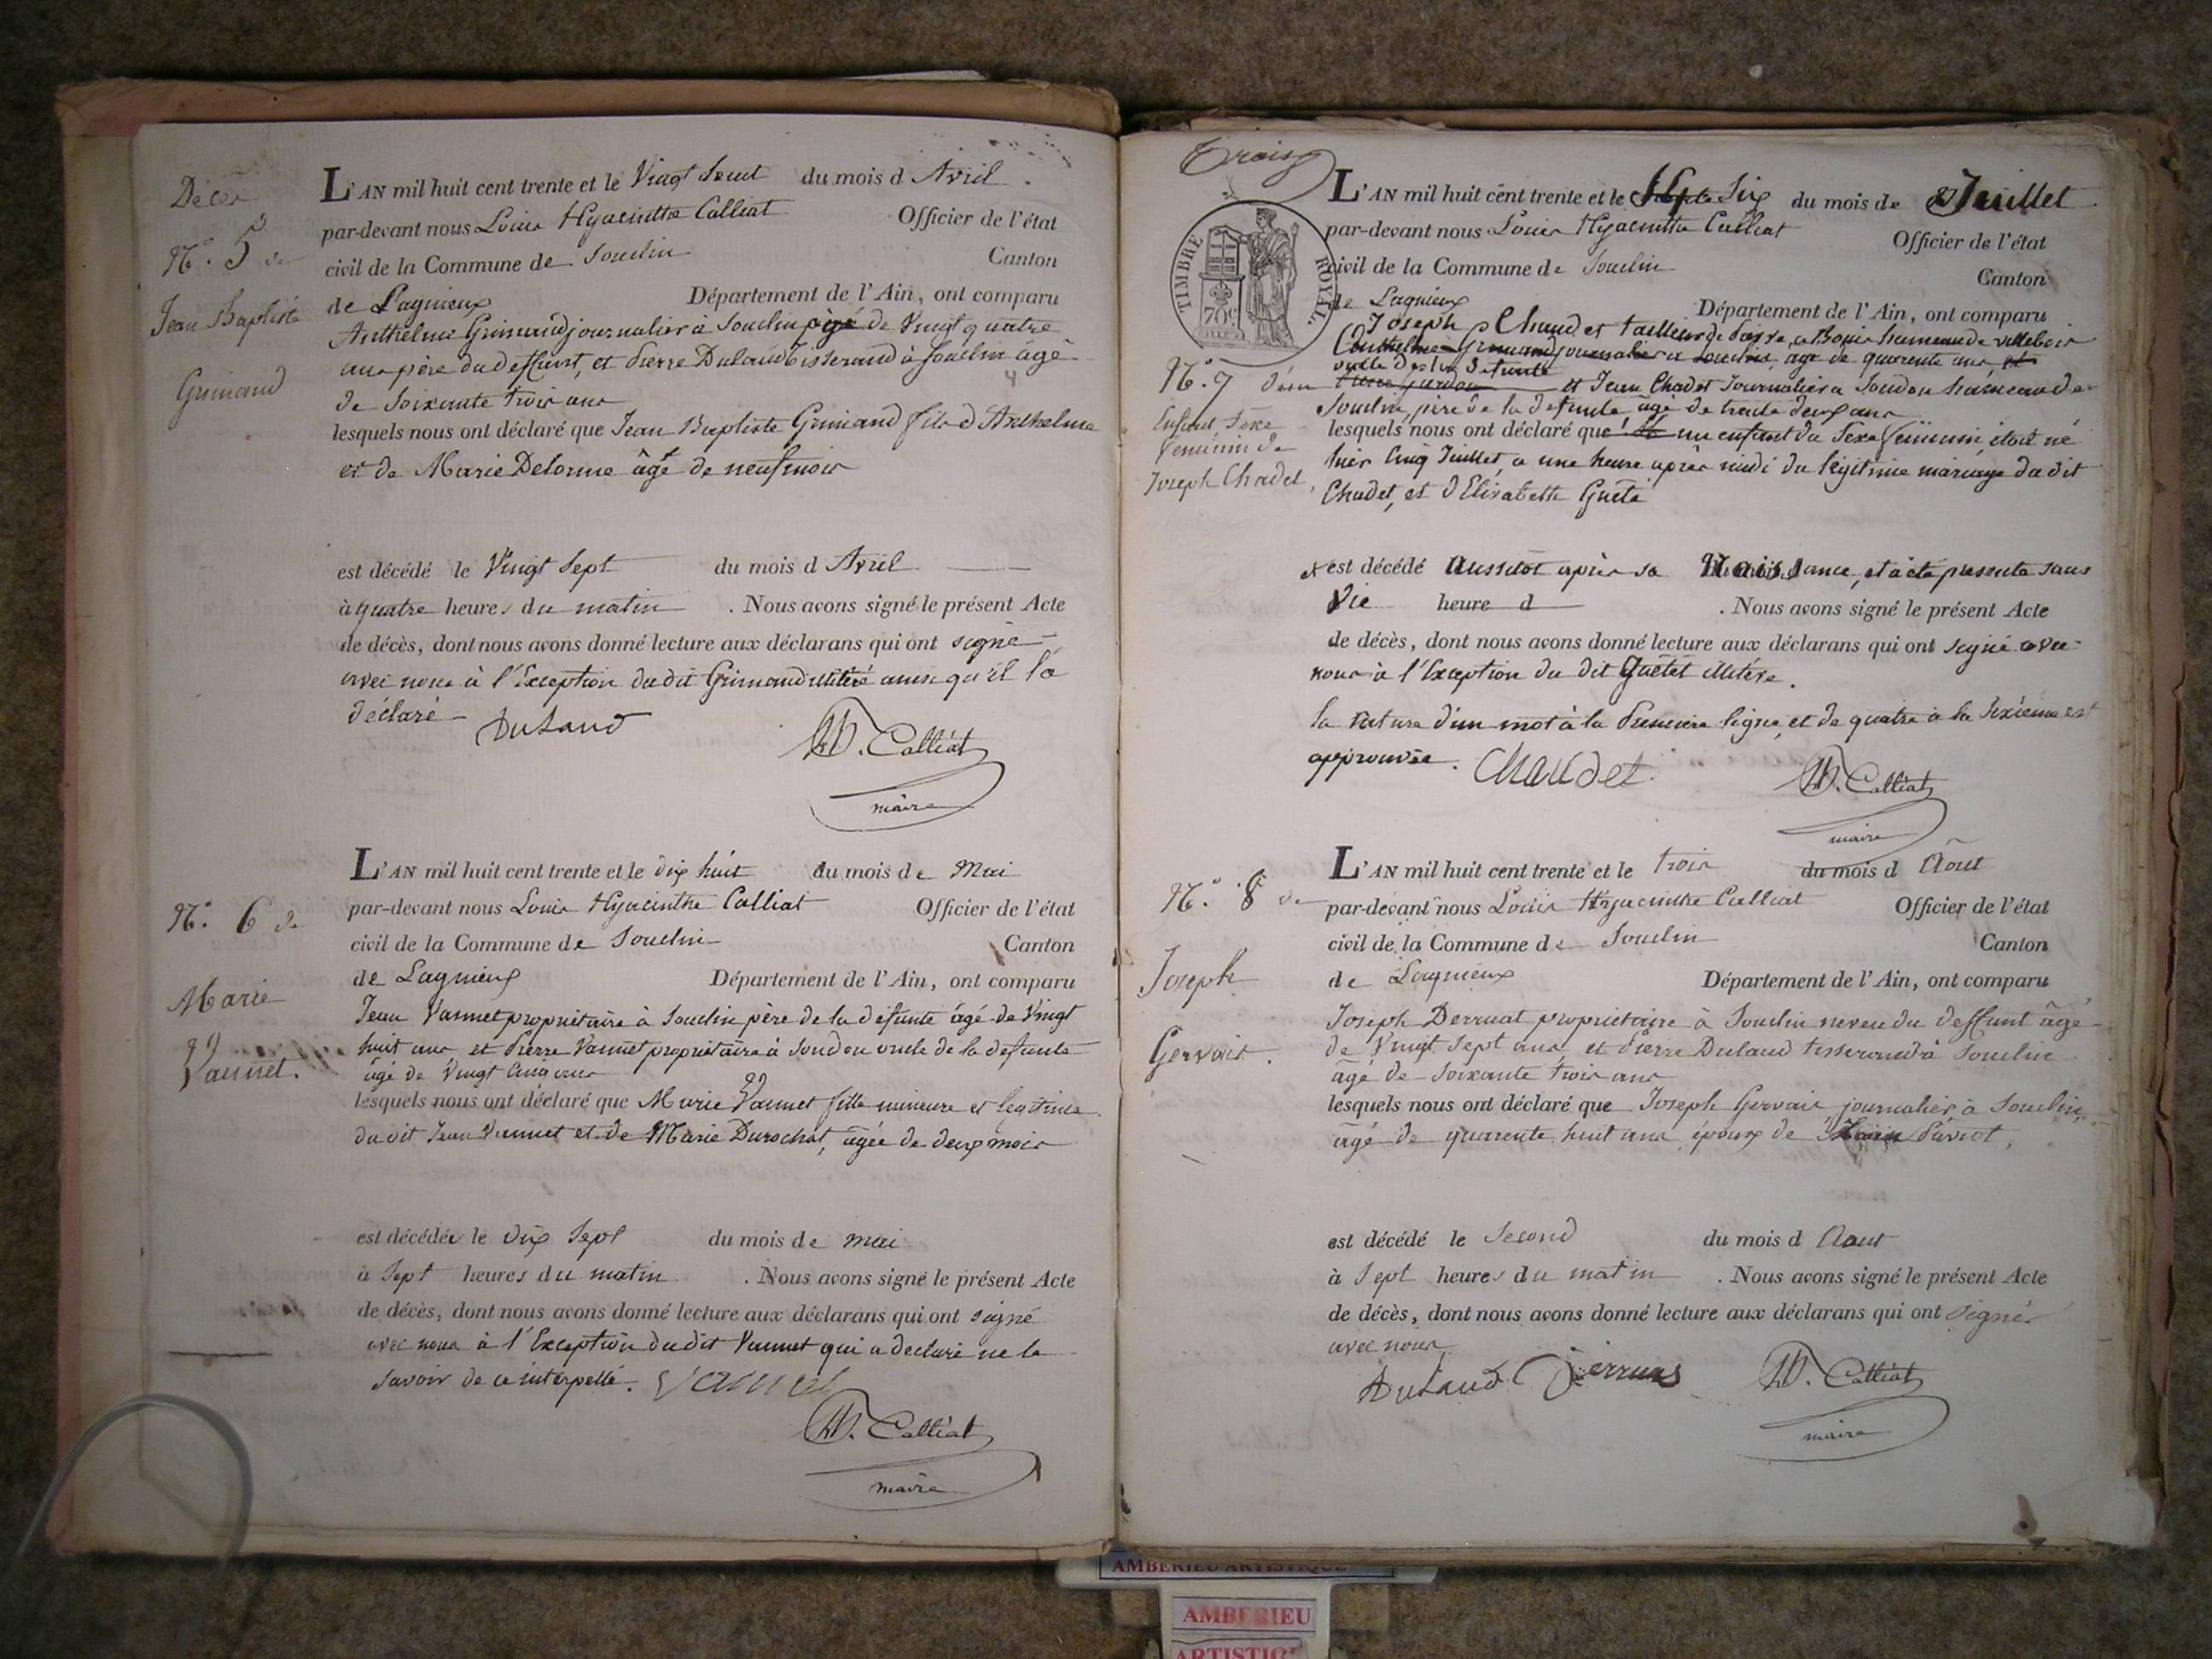 Décès
N.° 5 de
Jean Baptiste
Grimand
L'AN mil huit cent trente et le Vingt Sept du mois d Avril.
par-devant nous Louis Hyacinthe Calliat Officier de l'état
civil de la Commune de Souclin Canton
de Lagnieux Département de l'Ain, ont comparu
Anthelme Grimand journalier à Souclin âgé de Vingt quatre
ans père du deffunt, et Pierre Dulaud tisserand à Souclin âgé
de Soixante trois ans
lesquels nous ont déclaré que Jean Baptiste Grimand fils d Anthelme
et de Marie Delorme âgé de neuf mois
est décédé le Vingt Sept du mois d Avril
à quatre heures du matin . Nous avons signé le présent Acte
de décès, dont nous avons donné lecture aux déclarans qui ont signé
avec nous à l'Exception du dit Grimand illitéré ainsi qu'il l'a
déclaré
Dulaud
Calliat
maire
N.° 6 de
Marie
Vannet.
L'AN mil huit cent trente et le dix huit du mois de Mai
par-devant nous Louis Hyacinthe Calliat Officier de l'état
civil de la Commune de Souclin Canton
de Lagnieux Département de l'Ain, ont comparu
Jean Vannet propriétaire à Souclin père de la défunte âgé de Vingt
huit ans, et Pierre Vannet propriétaire à Soudon oncle de la défunte
âgé de Vingt Cinq ans
lesquels nous ont déclaré que Marie Vannet fille mineure et légitime
du dit Jean Vannet et de Marie Durochat, âgée de deux mois
est décédée le dix Sept du mois de mai
à Sept heures du matin . Nous avons signé le présent Acte
de décès, dont nous avons donné lecture aux déclarans qui ont signé
avec nous à l'Exception du dit Vannet qui a déclaré ne le
savoir de ce interpellé. Vannet
Calliat
maire
Trois
TIMBRE ROYAL.
70c
N.° 7 d'un
Enfant Sexe
Féminin de
Joseph Chadet,
L'AN mil huit cent trente et le Six du mois de Juillet
par-devant nous Louis Hyacinthe Calliat Officier de l'état
civil de la Commune de Souclin Canton
de Lagnieux Département de l'Ain, ont comparu
Joseph Chaudet tailleur de pierre, à Bouis hameau de villebois
Anthelme Grimand journalier à Souclin, âgé de quarente ans, et
oncle de la défunte
et Jean Chadet Journalier à Soudon hameau de
Souclin, père de la défunte âgé de trente deux ans
lesquels nous ont déclaré que un enfant du Sexe féminin, étoit né
hier Cinq Juillet, à une heure après midi du légitime mariage du dit
Chadet, et d Elisabeth Gueté
et est décédé Aussitôt après sa Naissance, et a été présenté sans
Vie heure d . Nous avons signé le présent Acte
de décès, dont nous avons donné lecture aux déclarans qui ont signé avec
nous à l'Exception du dit Guétet illitéré.
la rature d'un mot à la Première ligne, et de quatre à la Sixième est
approuvée. Chaudet
Calliat
maire
N.° 8 de
Joseph
Gervais.
L'AN mil huit cent trente et le trois du mois d Aout
par-devant nous Louis Hyacinthe Calliat Officier de l'état
civil de la Commune de Souclin Canton
de Lagnieux Département de l'Ain, ont comparu
Joseph Derruat propriétaire à Souclin neveu du deffunt âgé
de Vingt Sept ans, et Pierre Dulaud tisserand à Souclin
âgé de Soixante trois ans
lesquels nous ont déclaré que Joseph Gervais journalier, à Souclin,
âgé de quarente huit ans, époux de Páviot,
est décédé le Second du mois d Aout
à Sept heures du matin . Nous avons signé le présent Acte
de décès, dont nous avons donné lecture aux déclarans qui ont signé
avec nous
Dulaud Derruas
Calliat
maire
AMBERIEU ARTISTIQUE
AMBERIEU
ARTISTIQ